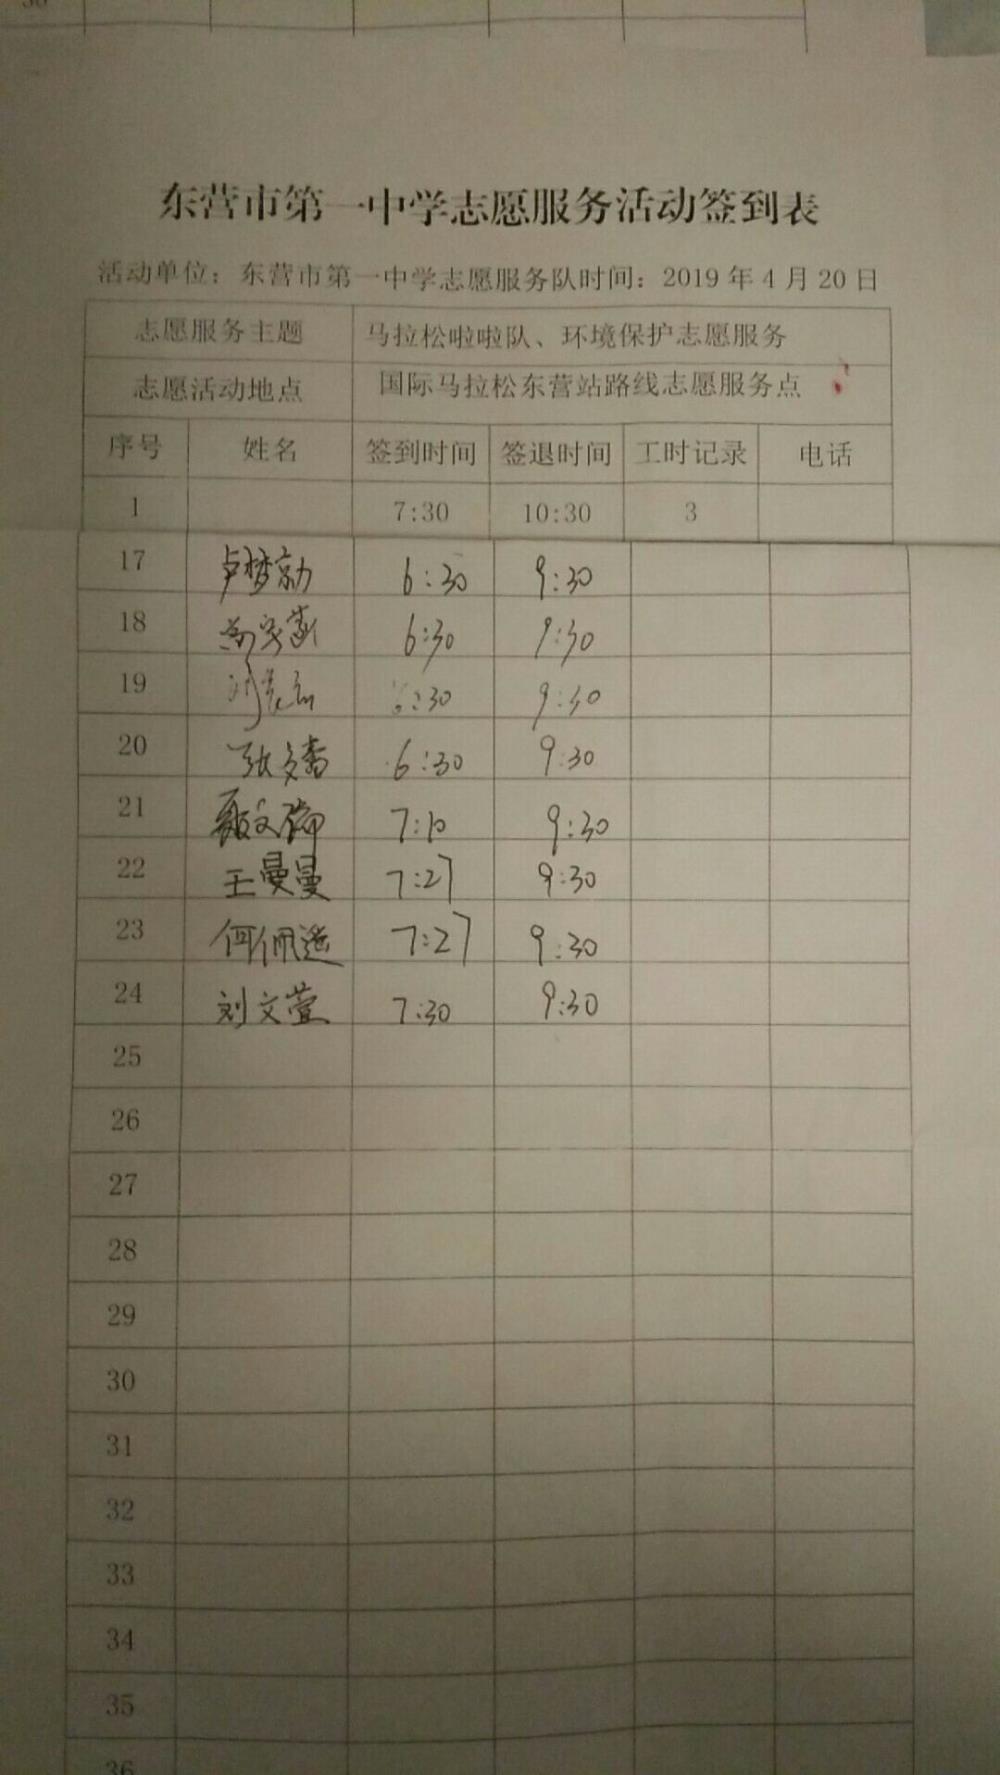 东营市第一中学志愿服务活动签到表
活动单位：东营市第一中学志愿服务队时间：2019 年 4 月 20 日
志愿服务主题 马拉松啦啦队、环境保护志愿服务
志愿活动地点 国际马拉松东营站路线志愿服务点
序号 姓名 签到时间 签退时间 工时记录 电话
1 7:30 10:30 3
17 卢梦 6:30 9:30
18 6:30 9:30
19 :30 9:30
20 张文 6:30 9:30
21 文 7:10 9:30
22 王曼曼 7:27 9:30
23 何佩遥 7:27 9:30
24 刘文萱 7:30 9:30
25
26
27
28
29
30
31
32
33
34
35
36